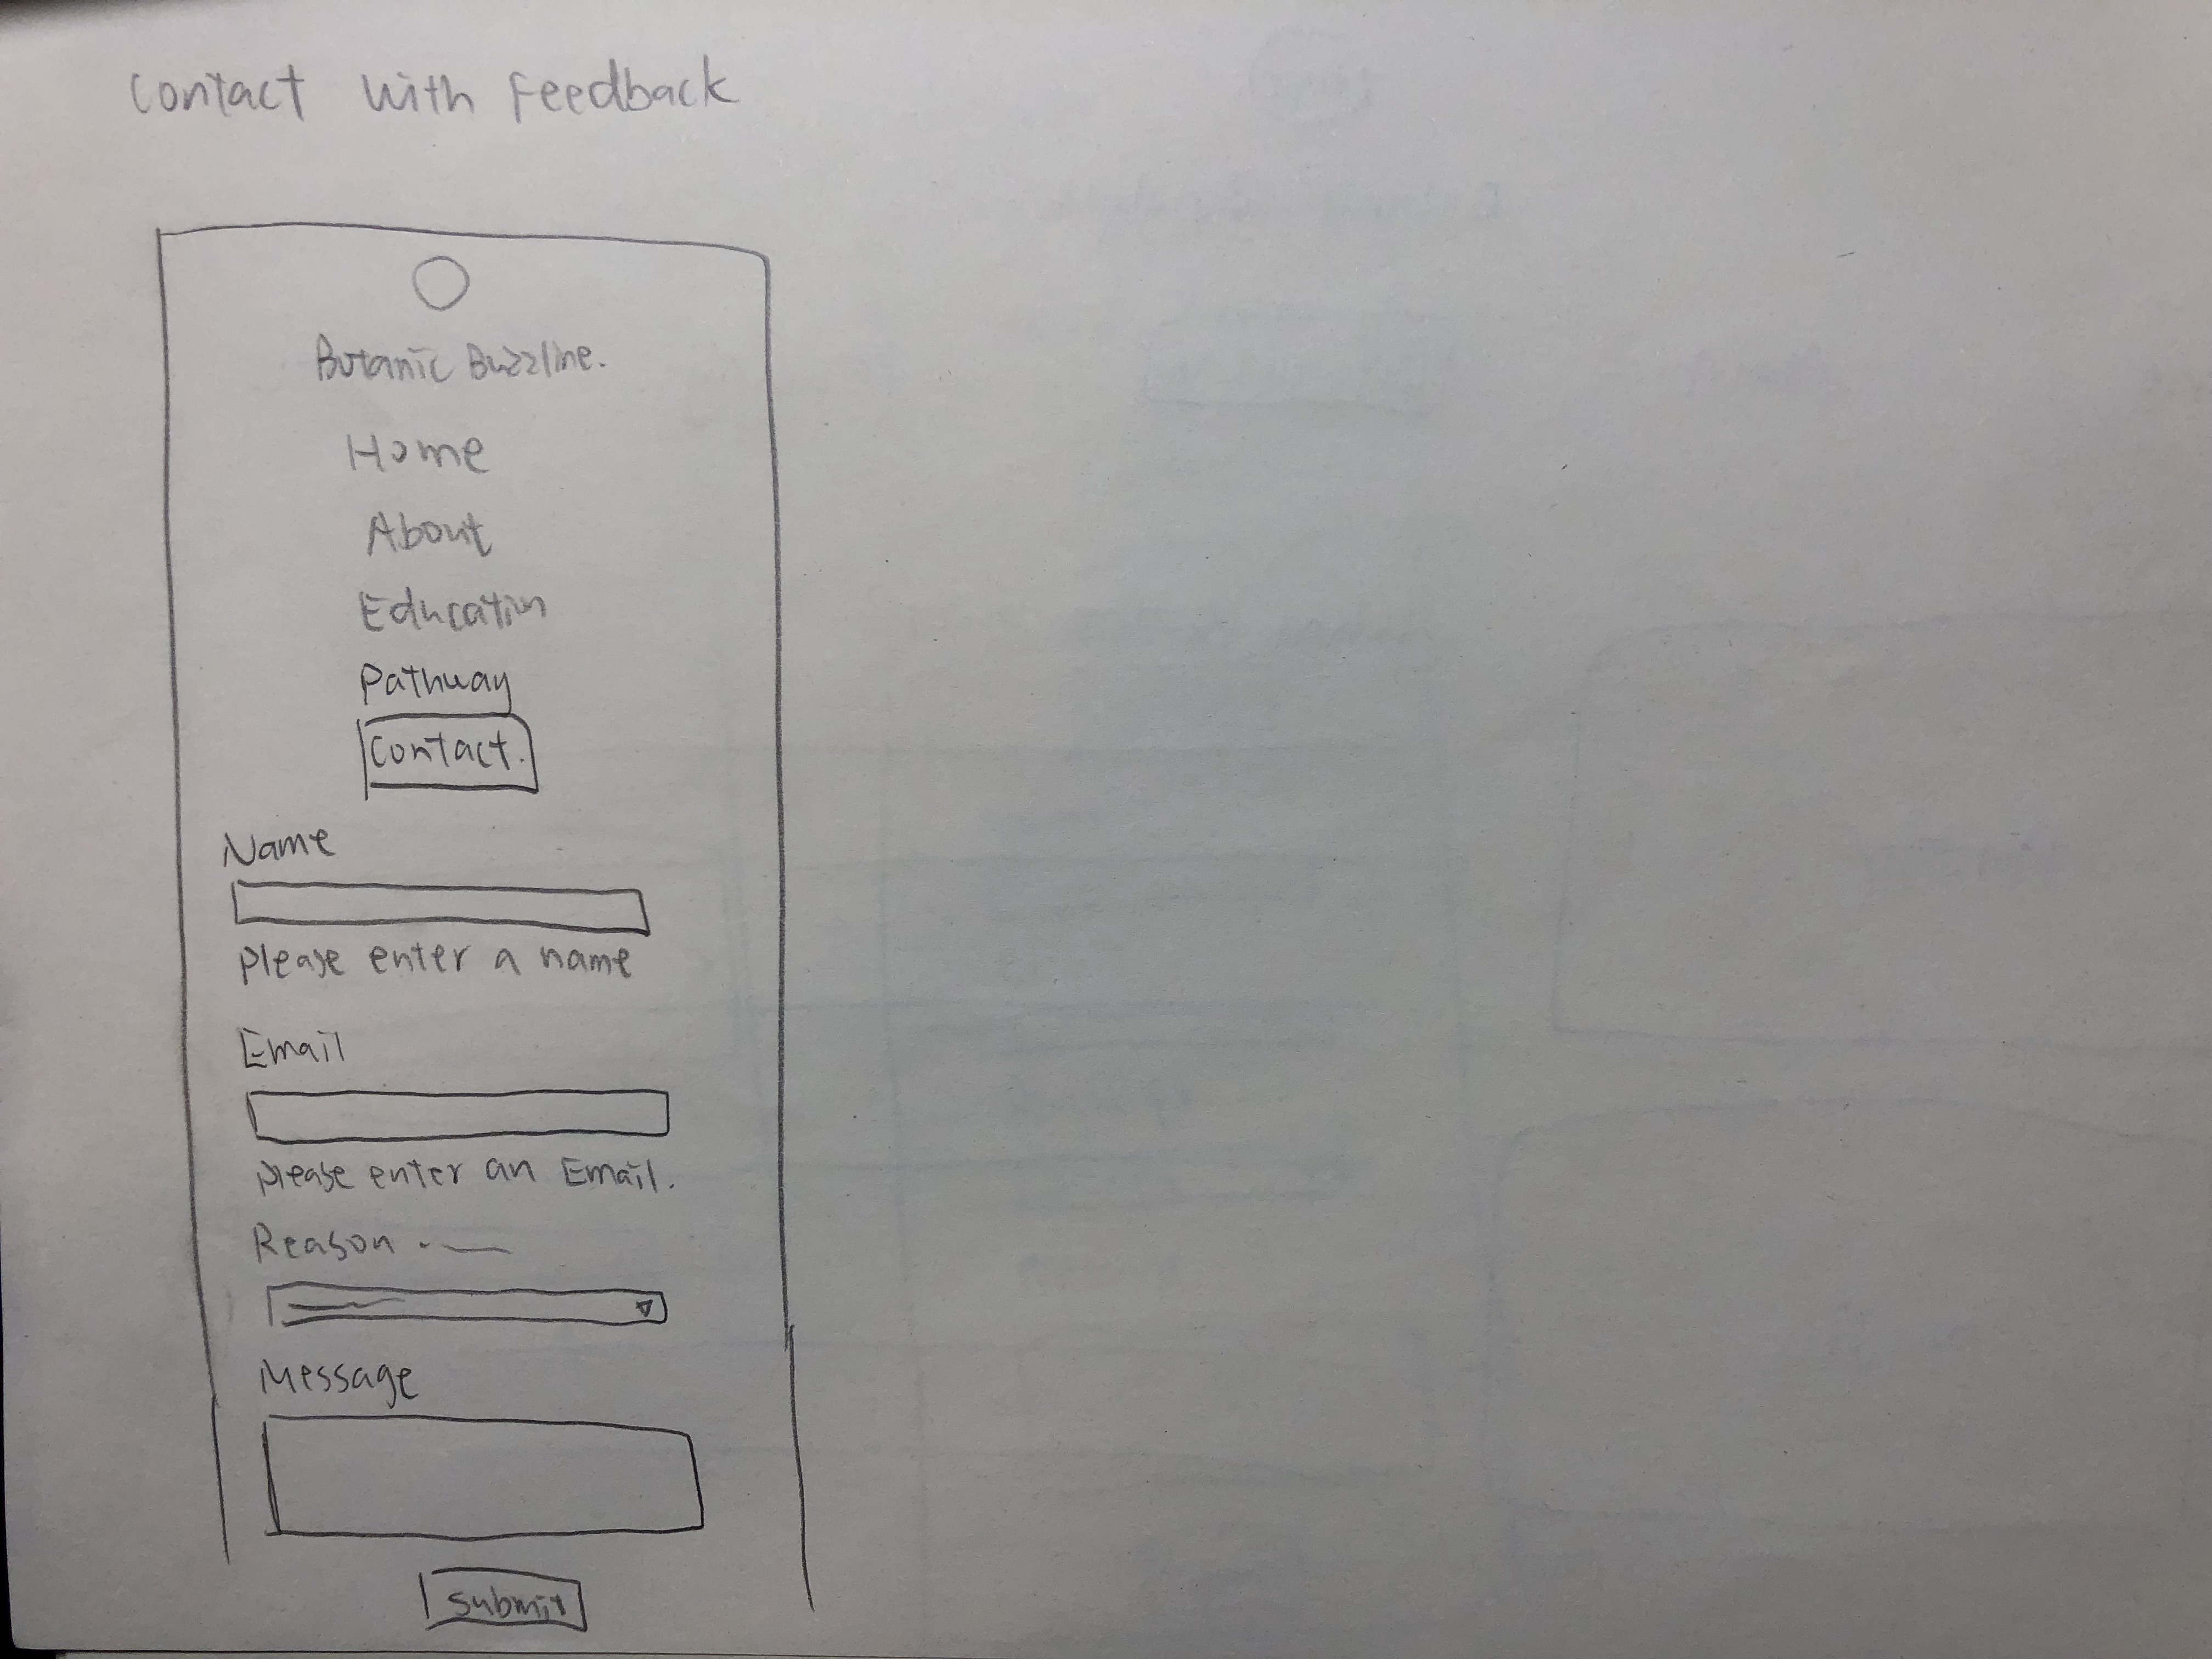 Contact with Feedback
Botanic Buzzline.
Home
About
Education
Pathway
Contact.
Name
please enter a name
Email
please enter an Email.
Reason
Message
submit